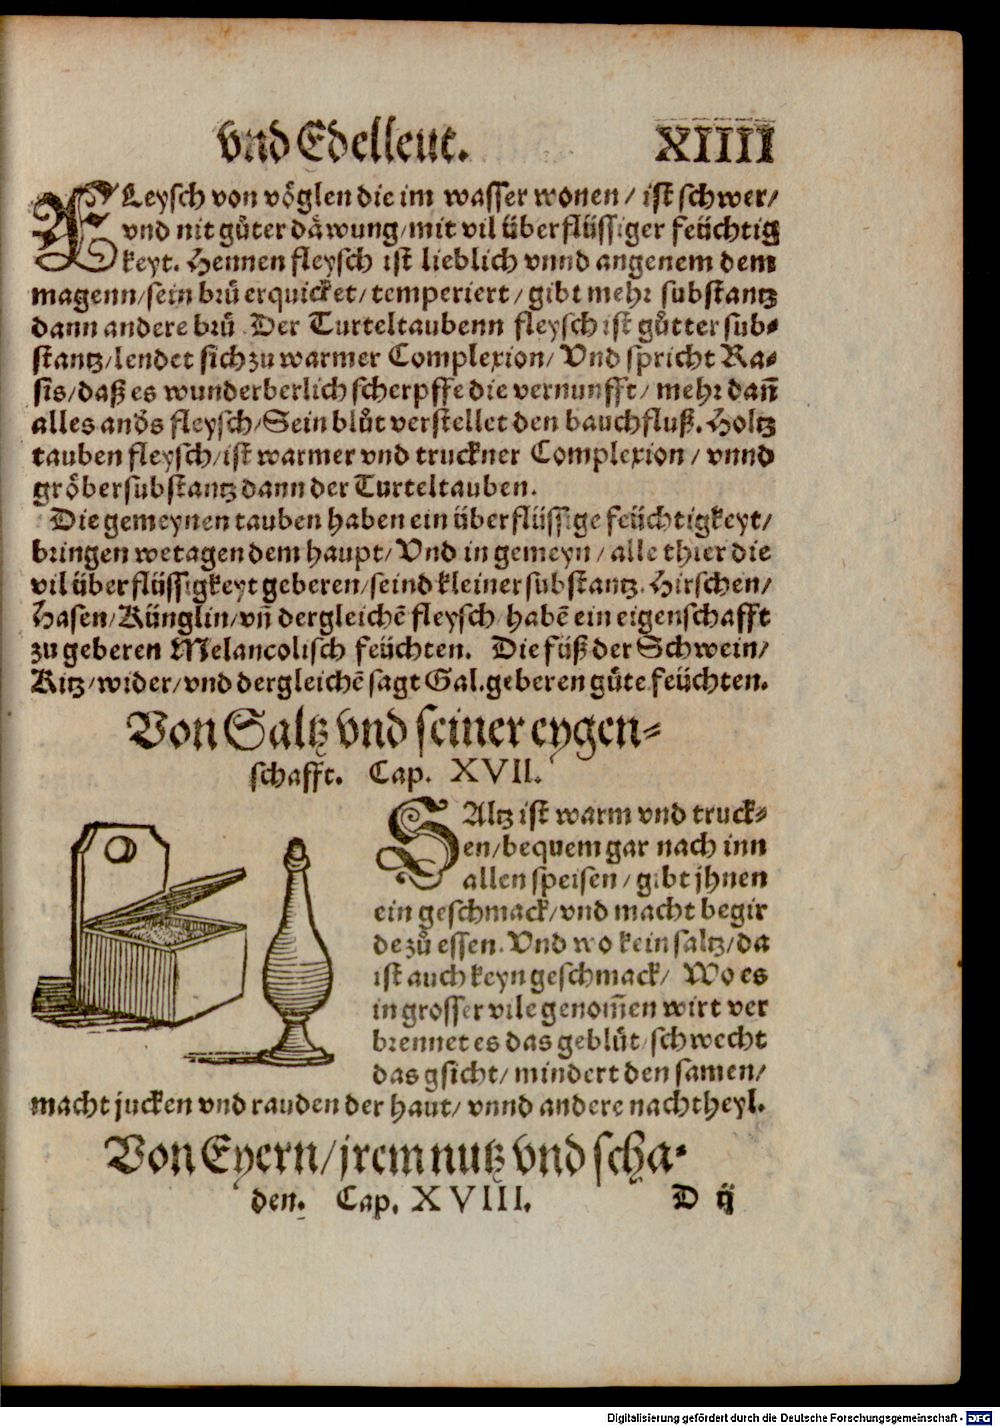 vnd Edelleut. XIIII
FLeysch von vöglen die im wasser wonen / ist schwer /
vnd nit gůter däwung / mit vil überflüssiger feüchtig
keyt. Hennen fleysch ist lieblich vnnd angenem dem
magenn / sein brů erquicket / temperiert / gibt mehr substantz
dann andere brů. Der Turteltaubenn fleysch ist gůtter sub-
stantz / lendet sich zu warmer Complexion / Vnd spricht Ra-
sis / daß es wunderberlich scherpffe die vernunfft / mehr dañ
alles anďs fleysch / Sein blůt verstellet den bauchfluß. Holtz
tauben fleysch / ist warmer vnd truckner Complexion / vnnd
gröber substantz dann der Turteltauben.
Die gemeynen tauben haben ein überflüssige feüchtigkeyt /
bringen wetagen dem haupt / Vnd in gemeyn / alle thier die
vil überflüssigkeyt geberen / seind kleiner substantz. Hirschen /
Hasen / Künglin / vñ dergleichē fleysch / habē ein eigenschafft
zu geberen Melancolisch feüchten. Die füß der Schwein /
Kitz / wider / vnd dergleichē sagt Gal. geberen gůte feüchten.
Von Saltz vnd seiner eygen-
schafft. Cap. XVII.
SAltz ist warm vnd truck-
en / bequem gar nach inn
allen speisen / gibt jhnen
ein geschmack / vnd macht begir
de zů essen. Vnd wo kein saltz / da
ist auch keyn geschmack / Wo es
in grosser vile genom̃en wirt ver
brennet es das geblůt / schwecht
das gsicht / mindert den samen /
macht jucken vnd rauden der haut / vnnd andere nachtheyl.
Von Eyern / jrem nutz vnd scha-
den. Cap. XVIII. D ij
Digitalisierung gefördert durch die Deutsche Forschungsgemeinschaft - DFG